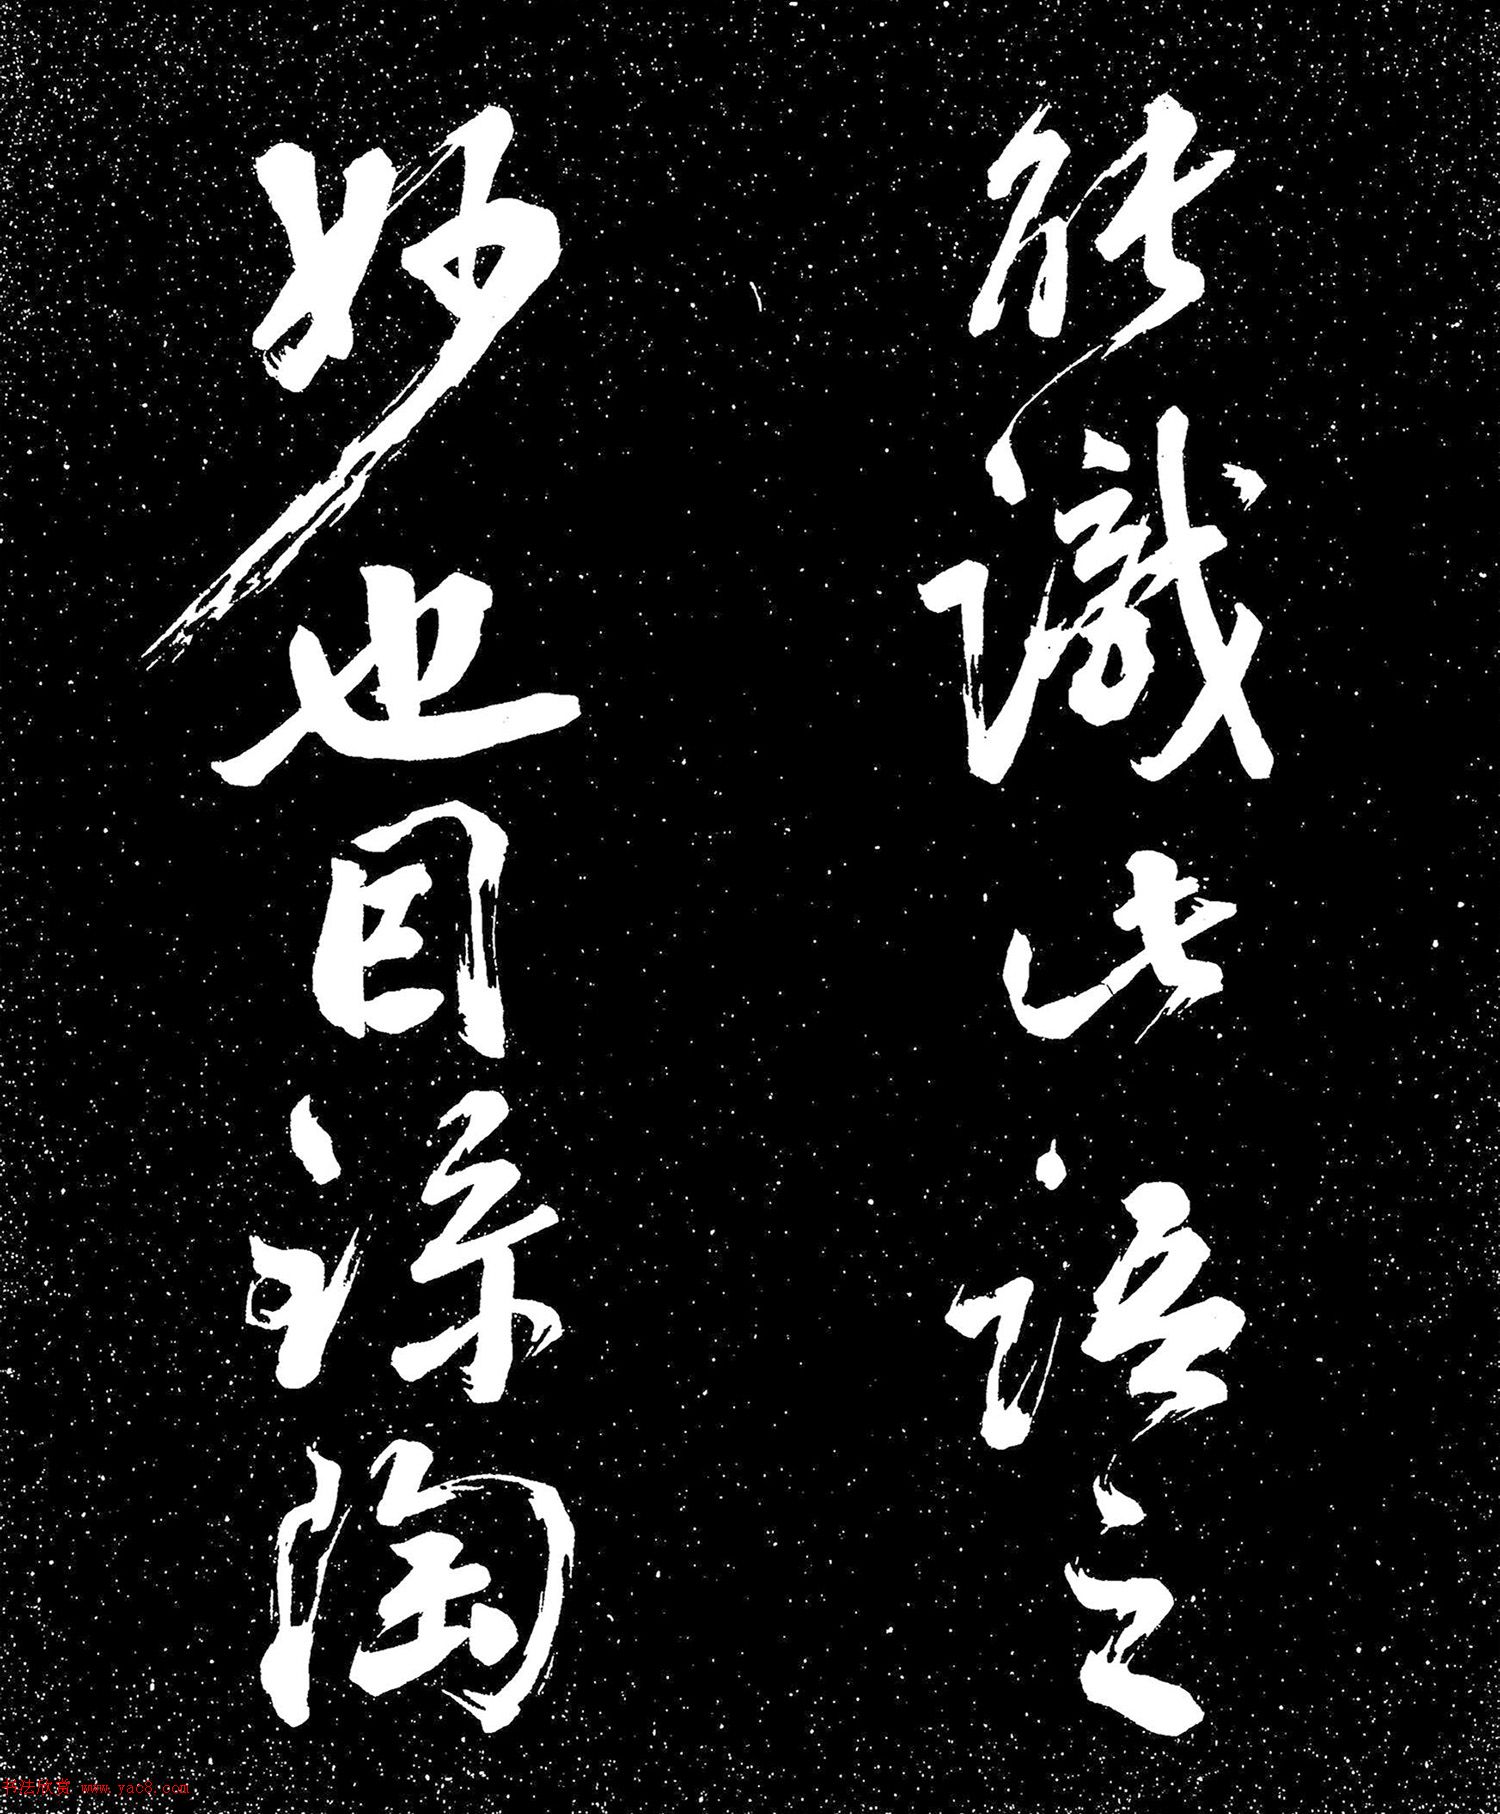 能識此語之
妙也因録陶
书法欣赏 www.yac8.com